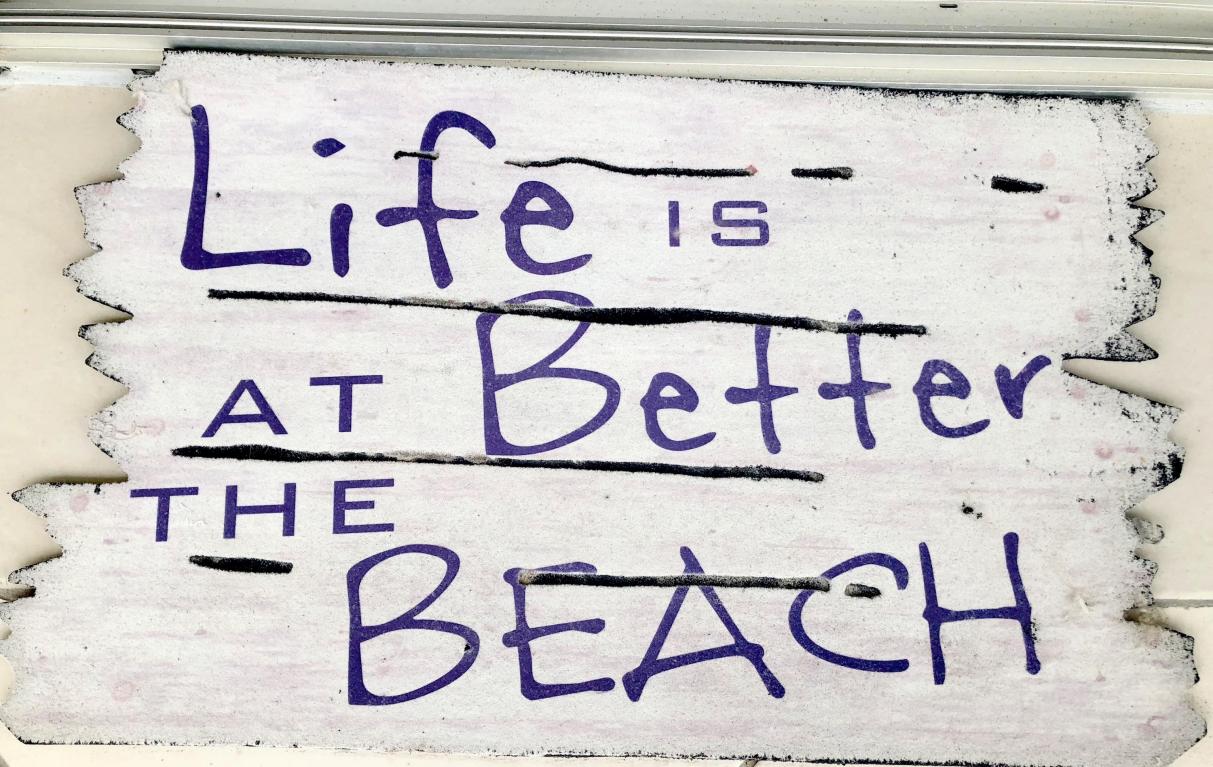 Life IS
AT Better
THE
BEACH